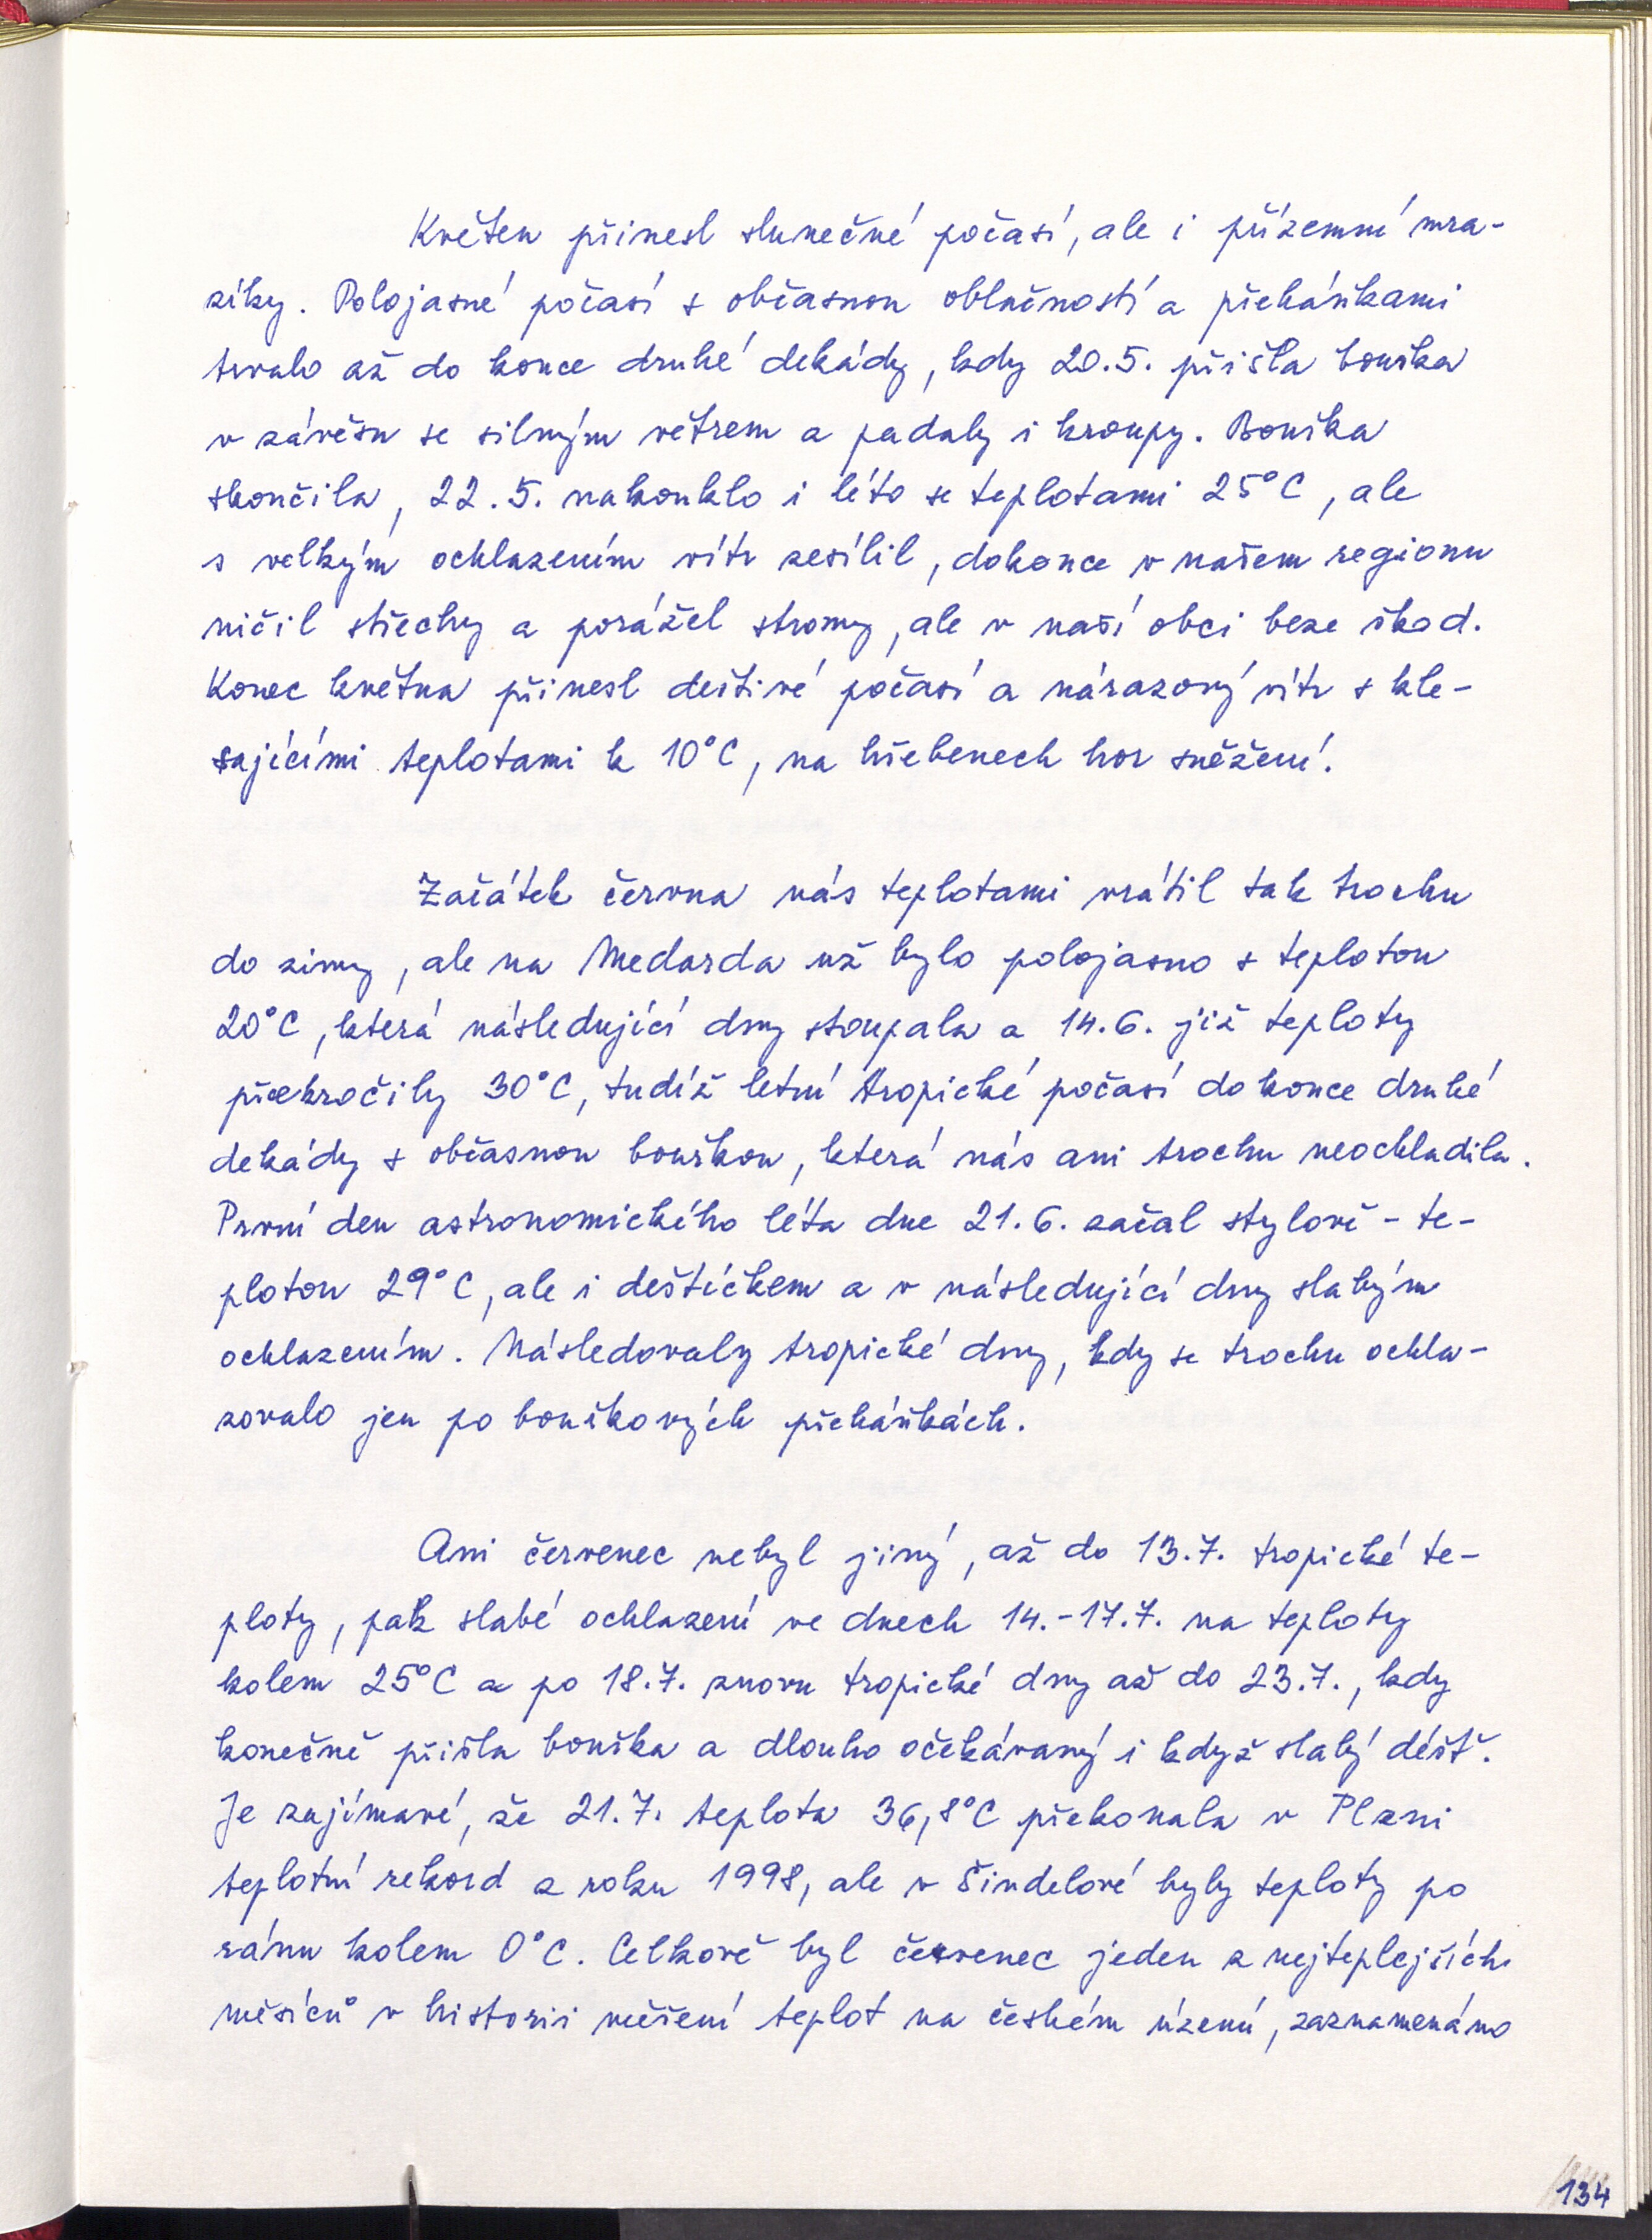 Květen přinesl slunečné počasí, ale i přízemní mra-
zíky. Polojasné počasí s občasnou oblačností a přeháňkami
trvalo až do konce druhé dekády, kdy 20.5. přišla bouřka
v závěsu se silným větrem a padaly i kroupy. Bouřka
skončila, 22.5. nakouklo i léto se teplotami 25°C, ale
s velkým ochlazením vítr zesílil, dokonce v našem regionu
ničil střechy a porážel stromy, ale v naší obci beze škod.
Konec května přinesl deštivé počasí a nárazový vítr s kle-
sajícími teplotami k 10°C, na hřebenech hor sněžení.
Začátek června nás teplotami vrátil tak trochu
do zimy, ale na Medarda už bylo polojasno s teplotou
20°C, která následující dny stoupala a 14.6. již teploty
překročily 30°C, tudíž letní tropické počasí do konce druhé
dekády s občasnou bouřkou, která nás ani trochu neochladila.
První den astronomického léta dne 21.6. začal stylově - te-
plotou 29°C, ale i deštíčkem a v následující dny slabým
ochlazením. Následovaly tropické dny, kdy se trochu ochla-
zovalo jen po bouřkových přeháňkách.
Ani červenec nebyl jiný, až do 13.7. tropické te-
ploty, pak slabé ochlazení ve dnech 14.-17.7. na teploty
kolem 25°C a po 18.7. znovu tropické dny až do 23.7., kdy
konečně přišla bouřka a dlouho očekávaný i když slabý déšť.
Je zajímavé, že 21.7. teplota 36,8°C překonala v Plzni
teplotní rekord z roku 1998, ale v Šindelové byly teploty po
ránu kolem 0°C. Celkově byl červenec jeden z nejteplejších
měsíců v historii měření teplot na českém území, zaznamenáno
134